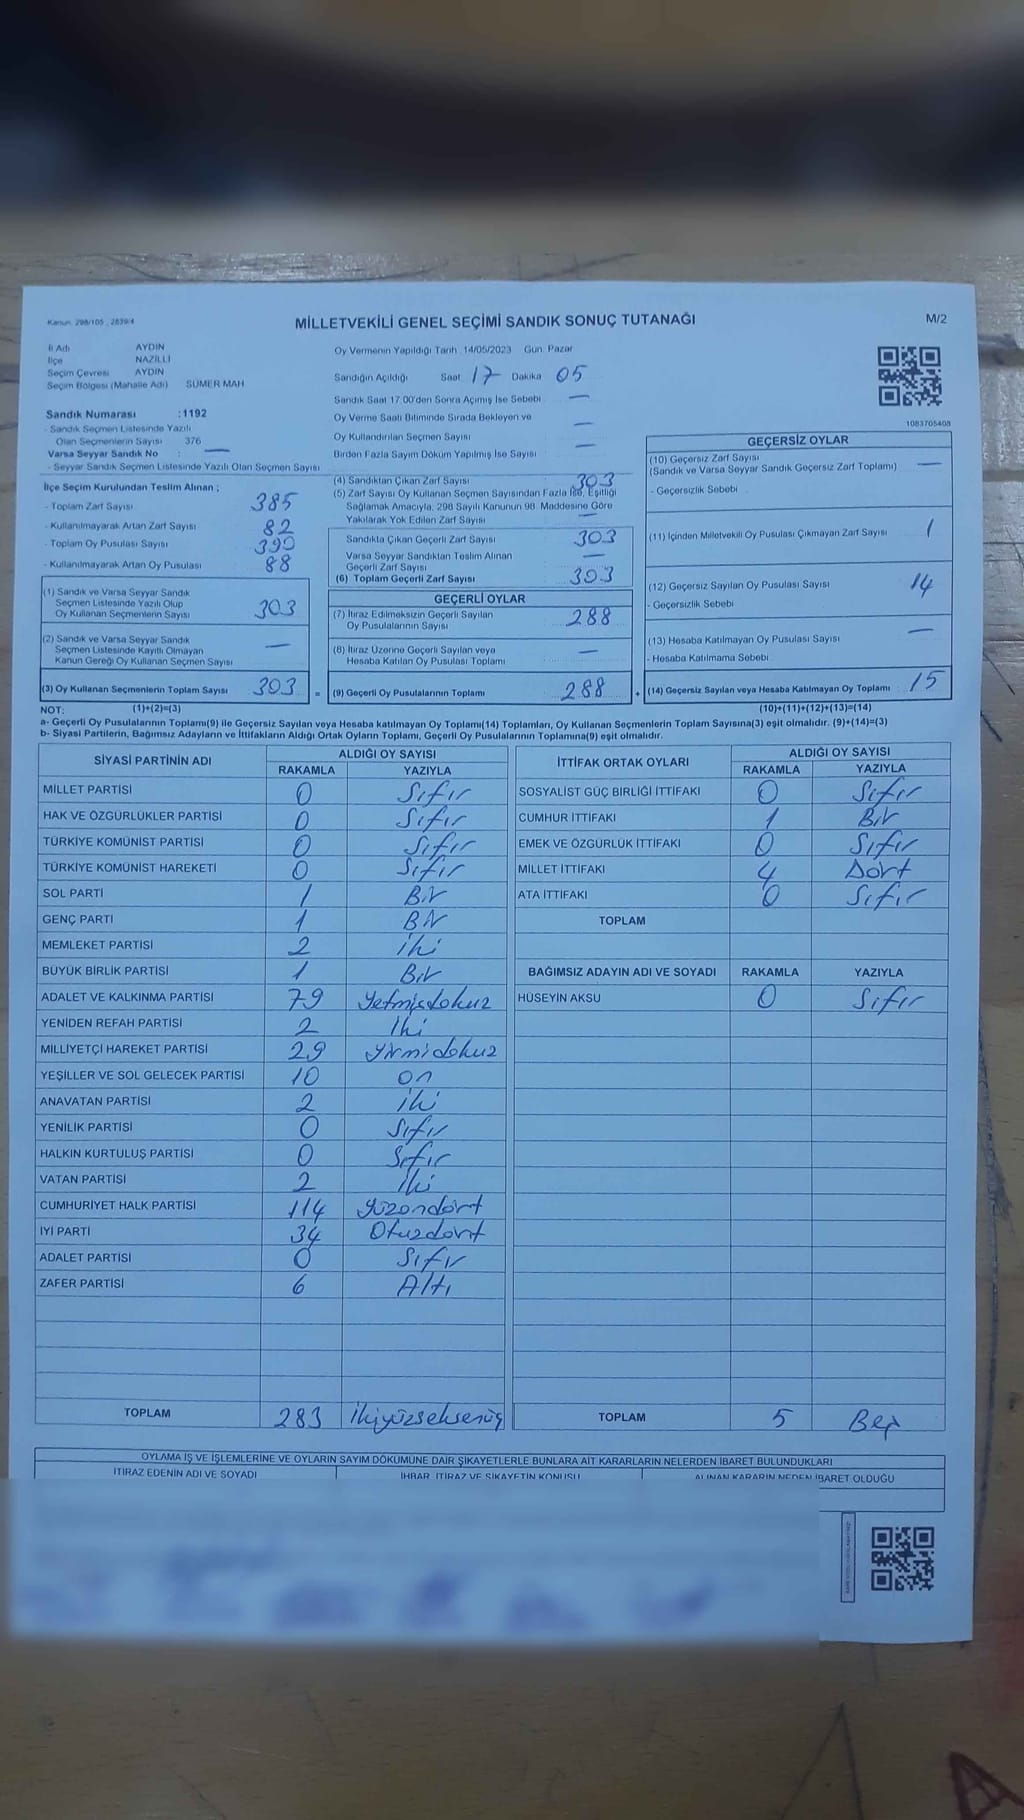 Kanun: 298/105 , 2839/4
MİLLETVEKİLİ GENEL SEÇİMİ SANDIK SONUÇ TUTANAĞI
M/2
İl Adı AYDIN
İlçe NAZİLLİ
Seçim Çevresi AYDIN
Seçim Bölgesi (Mahalle Adı) SÜMER MAH
Sandık Numarası :1192
- Sandık Seçmen Listesinde Yazılı
Olan Seçmenlerin Sayısı 376
Varsa Seyyar Sandık No : —
- Seyyar Sandık Seçmen Listesinde Yazılı Olan Seçmen Sayısı
Oy Vermenin Yapıldığı Tarih 14/05/2023 Gün: Pazar
Sandığın Açıldığı Saat 17 Dakika 05
Sandık Saat 17:00'den Sonra Açılmış İse Sebebi —
Oy Verme Saati Bitiminde Sırada Bekleyen ve
Oy Kullandırılan Seçmen Sayısı —
Birden Fazla Sayım Döküm Yapılmış İse Sayısı —
1083705408
İlçe Seçim Kurulundan Teslim Alınan ;
- Toplam Zarf Sayısı 385
- Kullanılmayarak Artan Zarf Sayısı 82
- Toplam Oy Pusulası Sayısı 390
- Kullanılmayarak Artan Oy Pusulası 88
(1) Sandık ve Varsa Seyyar Sandık
Seçmen Listesinde Yazılı Olup
Oy Kullanan Seçmenlerin Sayısı 303
(2) Sandık ve Varsa Seyyar Sandık
Seçmen Listesinde Kayıtlı Olmayan
Kanun Gereği Oy Kullanan Seçmen Sayısı —
(3) Oy Kullanan Seçmenlerin Toplam Sayısı 303 =
(4) Sandıktan Çıkan Zarf Sayısı 303
(5) Zarf Sayısı Oy Kullanan Seçmen Sayısından Fazla İse, Eşitliği
Sağlamak Amacıyla, 298 Sayılı Kanunun 98. Maddesine Göre
Yakılarak Yok Edilen Zarf Sayısı —
Sandıkta Çıkan Geçerli Zarf Sayısı 303
Varsa Seyyar Sandıktan Teslim Alınan
Geçerli Zarf Sayısı —
(6) Toplam Geçerli Zarf Sayısı 303
GEÇERLİ OYLAR
(7) İtiraz Edilmeksizin Geçerli Sayılan
Oy Pusulalarının Sayısı 288
(8) İtiraz Üzerine Geçerli Sayılan veya
Hesaba Katılan Oy Pusulası Toplamı —
(9) Geçerli Oy Pusulalarının Toplamı 288 +
GEÇERSİZ OYLAR
(10) Geçersiz Zarf Sayısı
(Sandık ve Varsa Seyyar Sandık Geçersiz Zarf Toplamı) —
- Geçersizlik Sebebi
(11) İçinden Milletvekili Oy Pusulası Çıkmayan Zarf Sayısı 1
(12) Geçersiz Sayılan Oy Pusulası Sayısı 14
- Geçersizlik Sebebi
(13) Hesaba Katılmayan Oy Pusulası Sayısı —
- Hesaba Katılmama Sebebi
(14) Geçersiz Sayılan veya Hesaba Katılmayan Oy Toplamı : 15
NOT: (1)+(2)=(3) (10)+(11)+(12)+(13)=(14)
a- Geçerli Oy Pusulalarının Toplamı(9) ile Geçersiz Sayılan veya Hesaba katılmayan Oy Toplamı(14) Toplamları, Oy Kullanan Seçmenlerin Toplam Sayısına(3) eşit olmalıdır. (9)+(14)=(3)
b- Siyasi Partilerin, Bağımsız Adayların ve İttifakların Aldığı Ortak Oyların Toplamı, Geçerli Oy Pusulalarının Toplamına(9) eşit olmalıdır.
SİYASİ PARTİNİN ADI ALDIĞI OY SAYISI
RAKAMLA YAZIYLA
MİLLET PARTİSİ 0 Sıfır
HAK VE ÖZGÜRLÜKLER PARTİSİ 0 Sıfır
TÜRKİYE KOMÜNİST PARTİSİ 0 Sıfır
TÜRKİYE KOMÜNİST HAREKETİ 0 Sıfır
SOL PARTİ 1 Bir
GENÇ PARTİ 1 Bir
MEMLEKET PARTİSİ 2 iki
BÜYÜK BİRLİK PARTİSİ 1 Bir
ADALET VE KALKINMA PARTİSİ 79 Yetmişdokuz
YENİDEN REFAH PARTİSİ 2 İki
MİLLİYETÇİ HAREKET PARTİSİ 29 Yirmidokuz
YEŞİLLER VE SOL GELECEK PARTİSİ 10 on
ANAVATAN PARTİSİ 2 iki
YENİLİK PARTİSİ 0 Sıfır
HALKIN KURTULUŞ PARTİSİ 0 Sıfır
VATAN PARTİSİ 2 iki
CUMHURİYET HALK PARTİSİ 114 Yüzondört
İYİ PARTİ 34 Otuzdört
ADALET PARTİSİ 0 Sıfır
ZAFER PARTİSİ 6 Altı
TOPLAM 283 İkiyüzseksenüç
İTTİFAK ORTAK OYLARI ALDIĞI OY SAYISI
RAKAMLA YAZIYLA
SOSYALİST GÜÇ BİRLİĞİ İTTİFAKI 0 Sıfır
CUMHUR İTTİFAKI 1 Bir
EMEK VE ÖZGÜRLÜK İTTİFAKI 0 Sıfır
MİLLET İTTİFAKI 4 Dört
ATA İTTİFAKI 0 Sıfır
TOPLAM
BAĞIMSIZ ADAYIN ADI VE SOYADI RAKAMLA YAZIYLA
HÜSEYİN AKSU 0 Sıfır
TOPLAM 5 Beş
OYLAMA İŞ VE İŞLEMLERİNE VE OYLARIN SAYIM DÖKÜMÜNE DAİR ŞİKAYETLERLE BUNLARA AİT KARARLARIN NELERDEN İBARET BULUNDUKLARI
İTİRAZ EDENİN ADI VE SOYADI İHBAR, İTİRAZ VE ŞİKAYETİN KONUSU ALINAN KARARIN NEDEN İBARET OLDUĞU